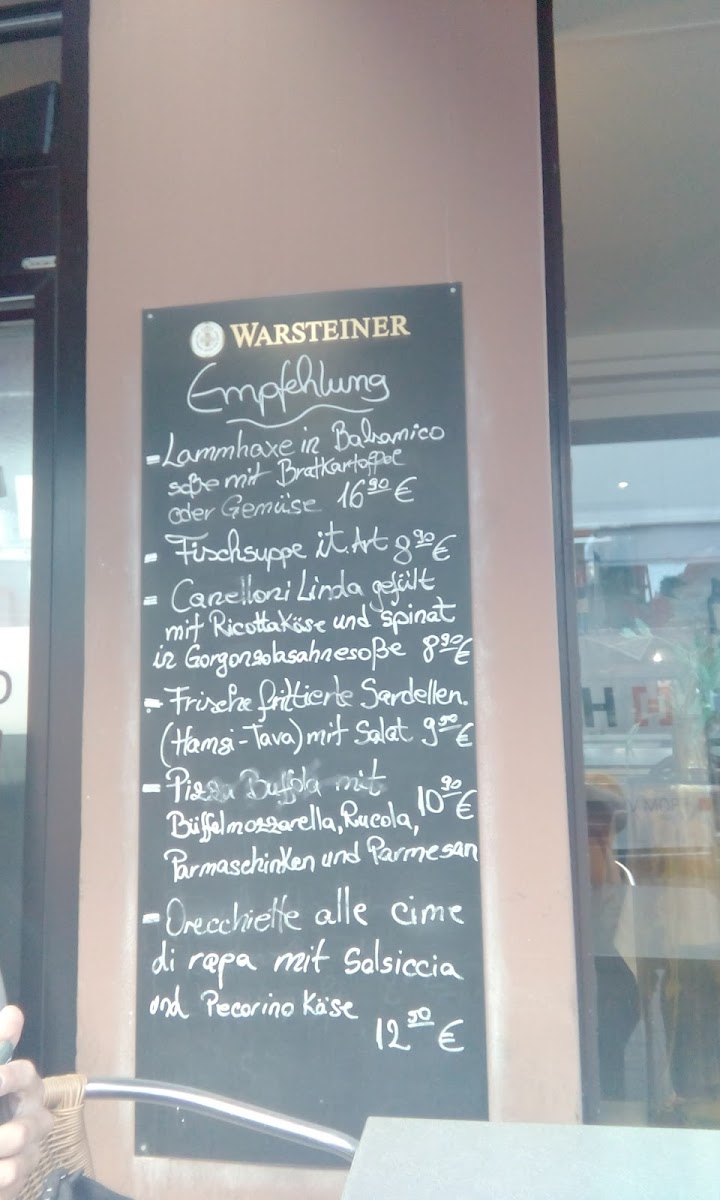 WARSTEINER
Empfehlung
- Lammhaxe in Balsamico
soße mit Bratkartoffel
oder Gemüse 16⁹⁰ €
- Fischsuppe it. Art 8⁹⁰ €
- Canelloni Linda gefült
mit Ricottakäse und spinat
in Gorgonzolasahnesoße 8⁹⁰ €
- Frische frittierte Sardellen.
(Hamsi-Tava) mit Salat 9⁹⁰ €
- Pizza Buffola mit
Büffelmozzarella, Rucola, 10⁹⁰ €
Parmaschinken und Parmesan
- Orecchiette alle cime
di rapa mit Salsiccia
und Pecorino Käse
12⁹⁰ €
H